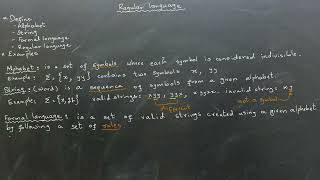 Regular language
* Define
- Alphabet
- String
- Formal language
- Regular language
* Examples
Alphabet: is a set of symbols where each symbol is considered indivisible.
Example: Σ = {x, yy} contains two symbols x, yy
String: (word) is a sequence of symbols from a given alphabet.
Example: Σ = {x, yy} valid strings: xyy, yyx, invalid string: xy
different
not a symbol
Formal language: is a set of valid strings created using a given alphabet
by following a set of rules.